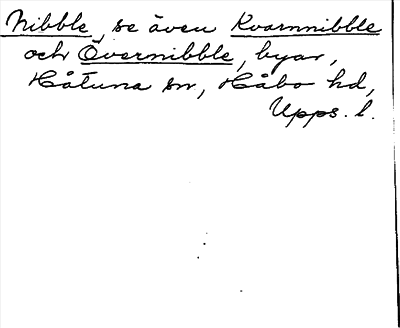 Nibble, se även Kvarnnibble
och Övernibble, byar,
Håtuna sn, Håbo hd,
Upps. l.